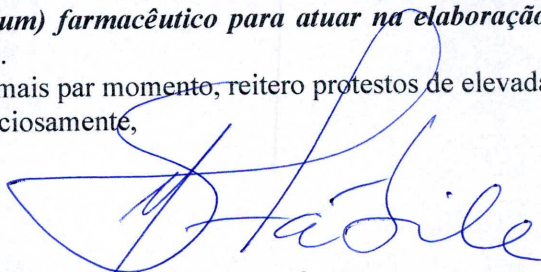 um) farmacêutico para atuar na elaboração
.
mais par momento, reitero protestos de elevada
ciosamente,